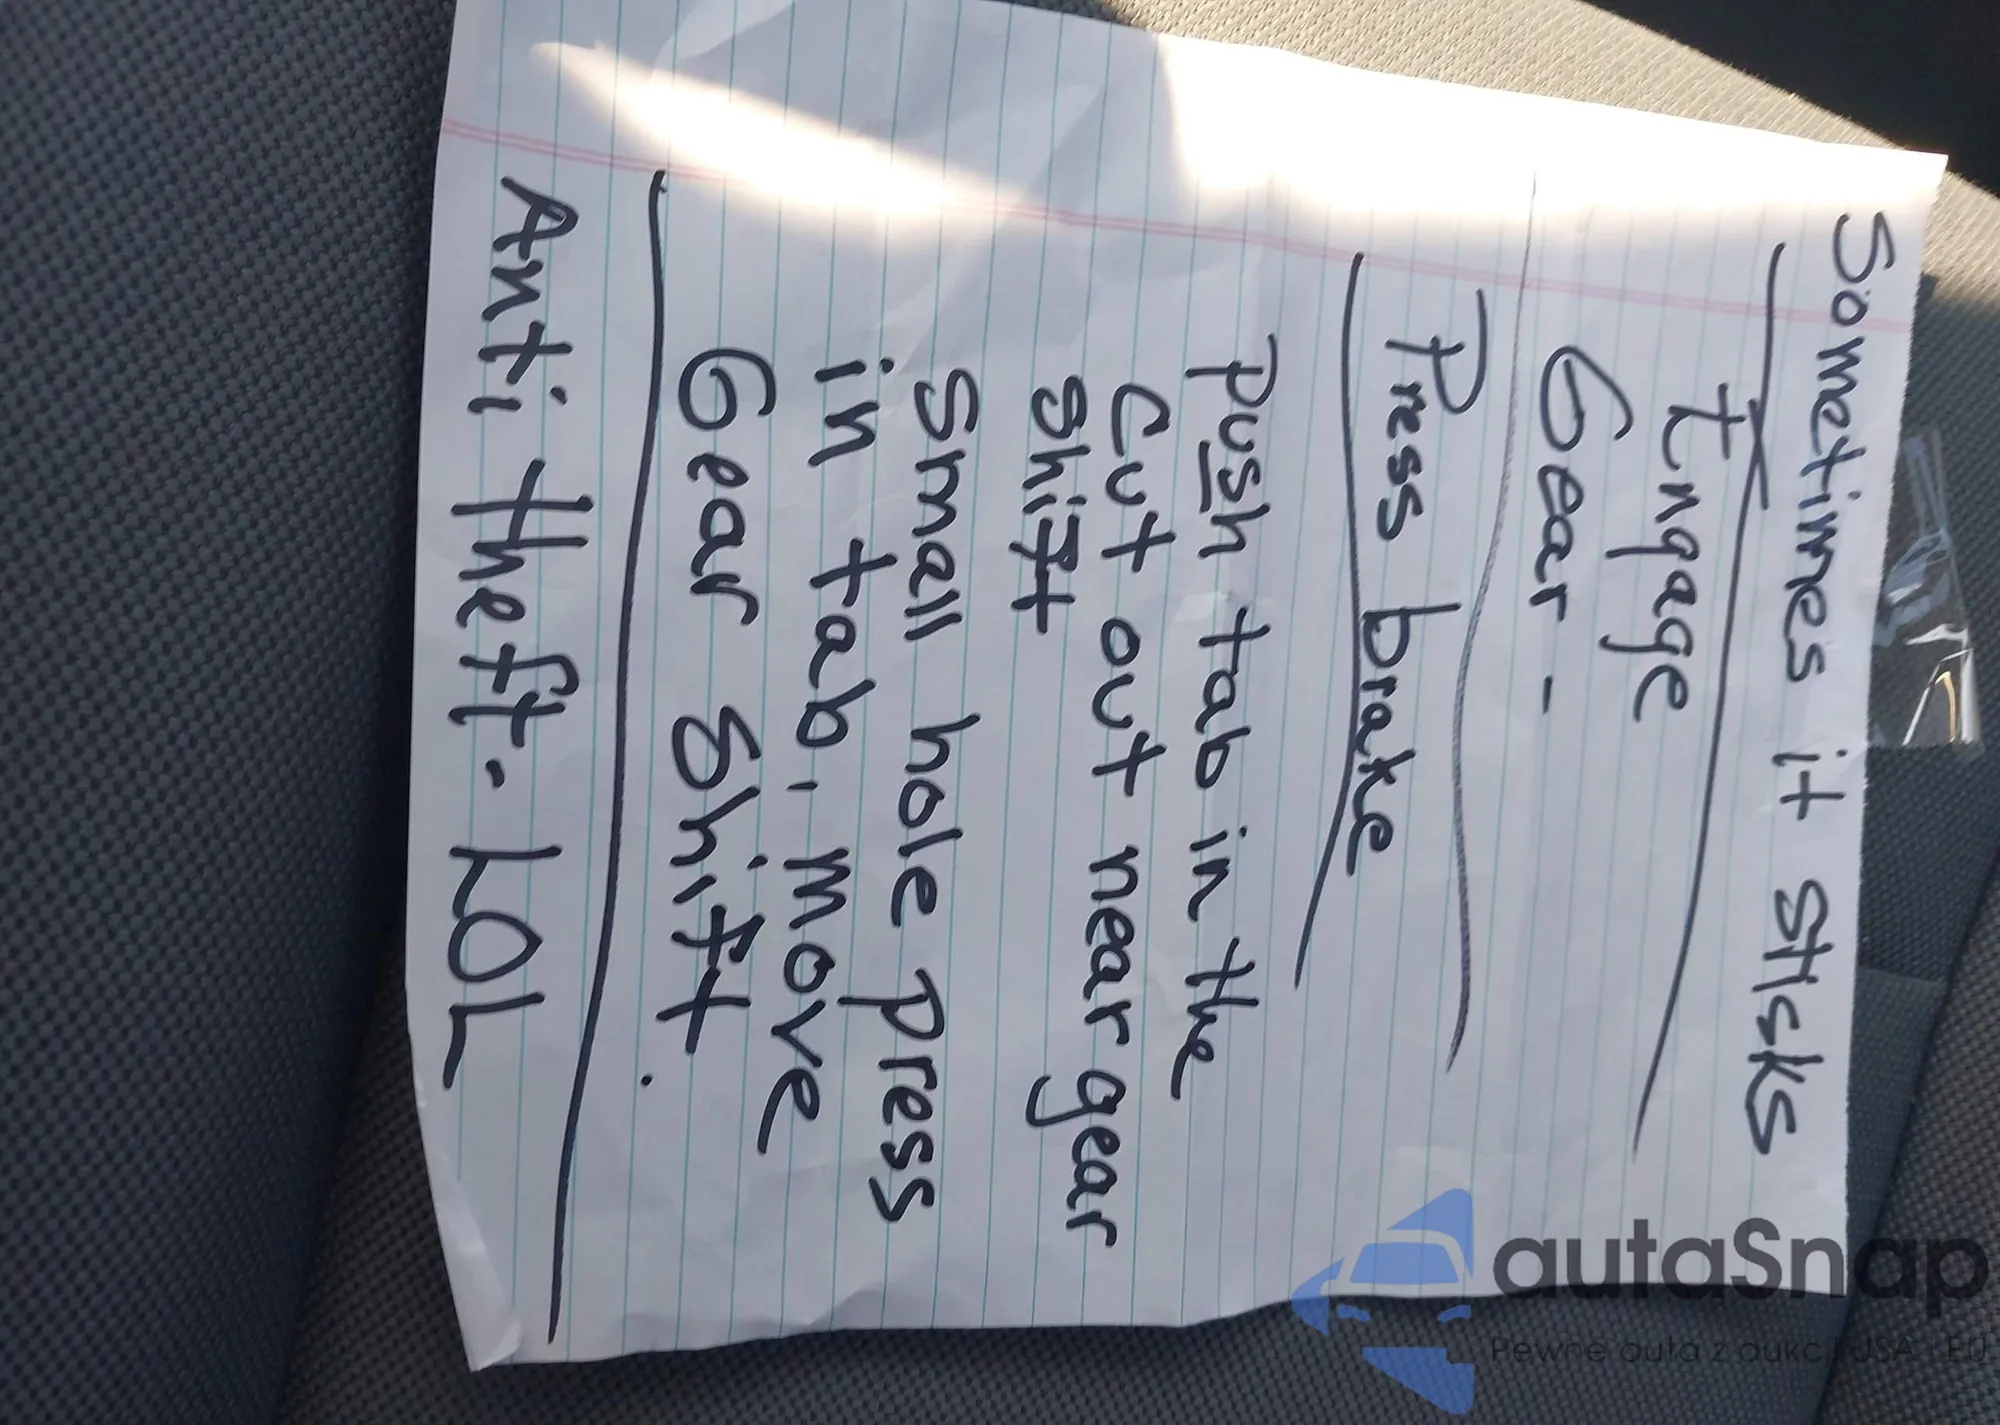 Sometimes it sticks
Engage
Gear -
Press brake
Push tab in the
Cut out near gear
Shift
Small hole press
in tab, Move
Gear Shift.
Anti theft. LOL
autaSnap
Pewne auta z aukcji USA i EU